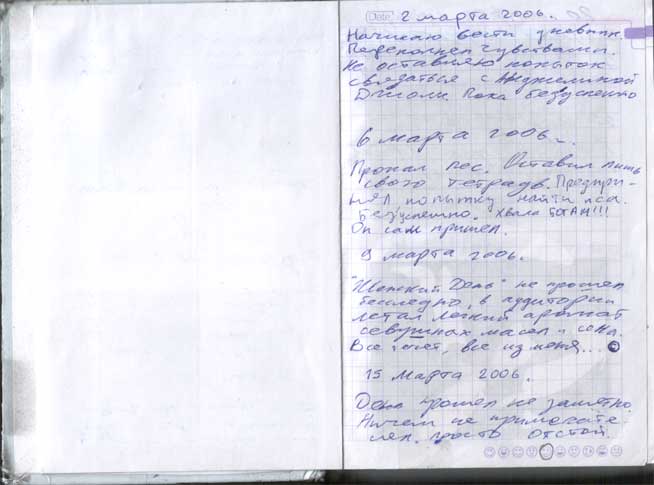 Date 2 марта 2006.
Начинаю вести дневник.
Переполнен чувствами.
Не оставляю попыток
связаться с Анджелиной
Джоли. Пока безуспешно
6 марта 2006.
Пропал пес. Оставил лишь
свою тетрадь. Предпри-
нял попытку найти пса.
Безуспешно. Хвала БОГАМ!!!
Он сам пришел.
9 марта 2006.
"Женский День" не прошел
бесследно, в аудитории
летал легкий аромат
масел и сена.
Все течет, все из меня...
15 марта 2006.
День прошел не заметно.
Ничем не примечате-
лен. просто отстой.